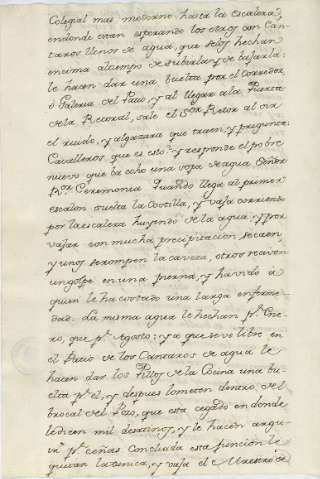 Colegial mas moderno hasta la escalera,
endonde estan esperando los otros con Can-
taros llenos de agua, que selos hechan
encima altiempo de subirla, y de bajarla:
le hacen dar una buelta por el corredor,
ô Galeria del Patio, y al llegar ala Puerta
dela Rectoral, sale el Sor Retor al oir
el ruido, y algazara que traen, y pregunta:
Cavalleros que es esto? y responde el pobre
nuevo que ha sido una sopa de agua Señor
Ror Ceremonia. Quando llega al primer
escalon suelta la Costilla, y vaja corriendo
por la escalera huyendo dela agua, y por
vajar con mucha precipitacion se caen,
y unos serompen la caveza, otros reciven
ungolpe en una pierna, y havido a
quien le ha costado una larga enferme-
dad. La misma agua le hechan pr. Ene-
ro, que pr. Agosto: y a que seve libre en
el Patio de los Cantaros de agua le
hacen dar los Pillos de la Cocina una bu-
elta pr. el, y despues lo meten dentro del
brocal del Pozo, que esta cegado en donde
le dicen mil desatinos, y le hacen
pr. señas Concluida esta funcion le
quitan la tunica, y vaja el Maestro de